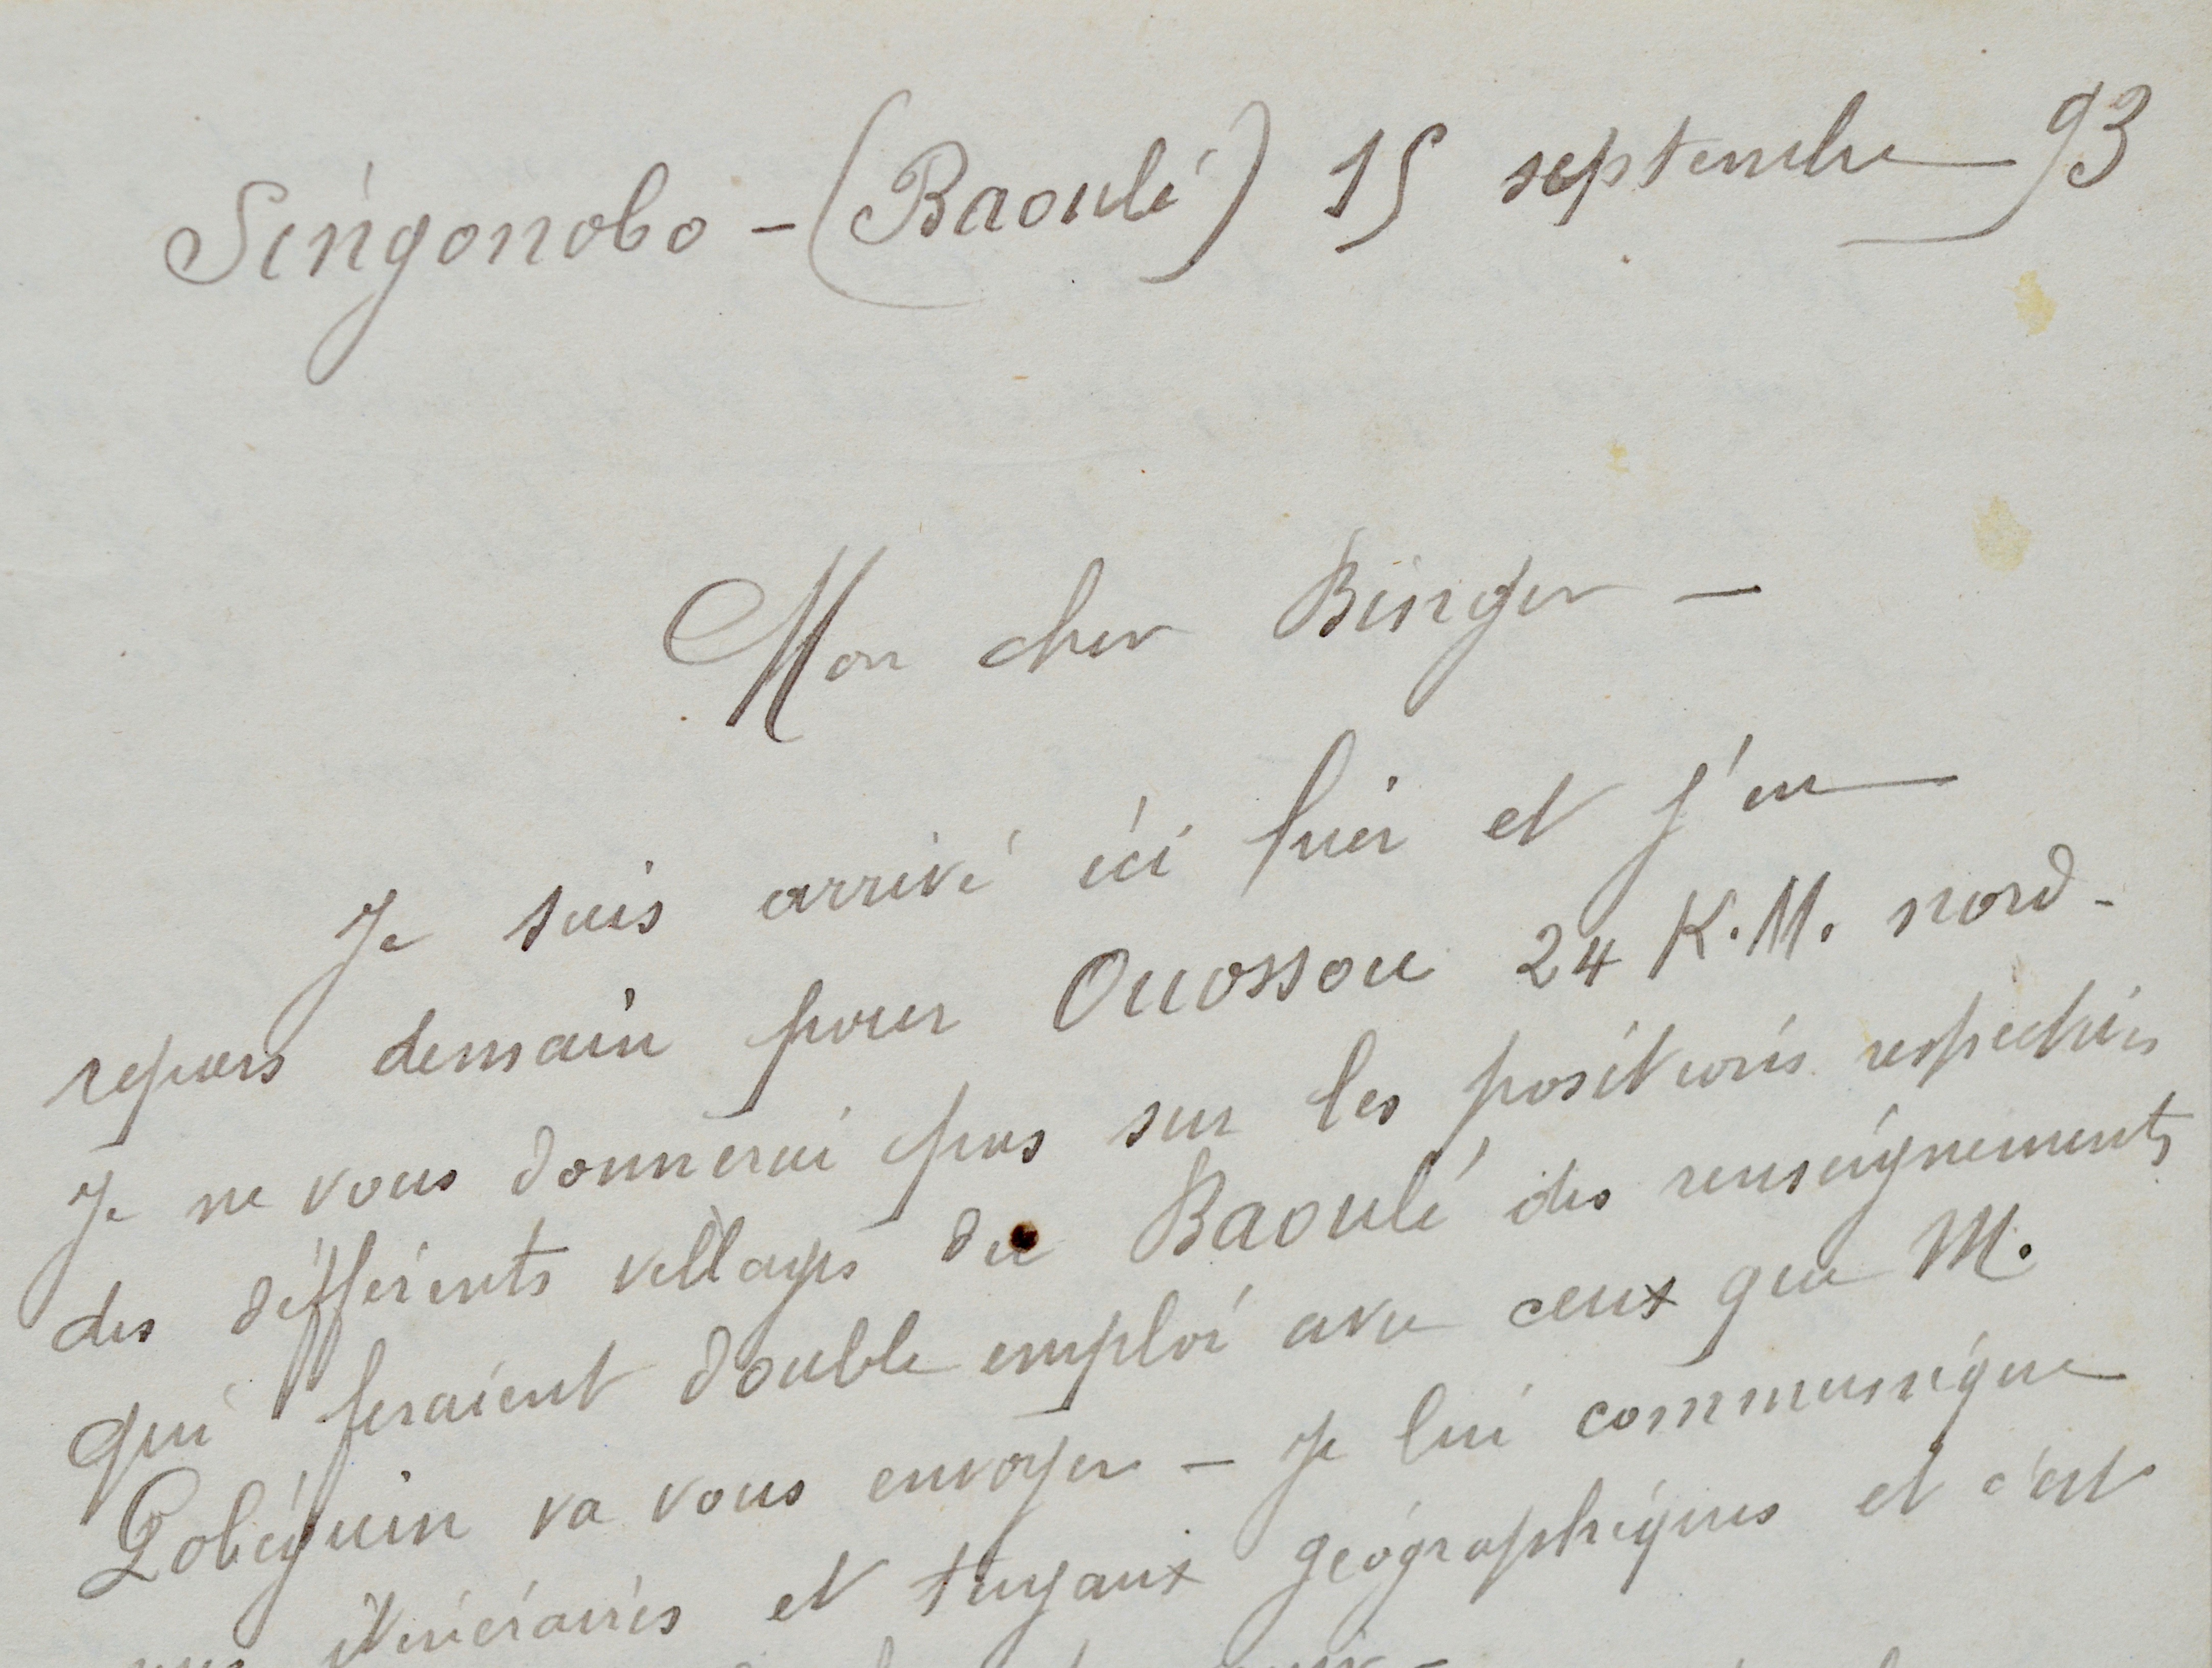 Singonobo - (Baoulé) 15 septembre 93
Mon cher Binger -
Je suis arrivé ici hier et j'en
repars demain pour Ouossou 24 K.M. nord -
Je ne vous donnerai pas sur les positions respectives
des différents villages du Baoulé des renseignements
qui feraient double emploi avec ceux que M.
Pobéguin va vous envoyer - Je lui communique
mes itinéraires et tuyaux géographiques et c'est